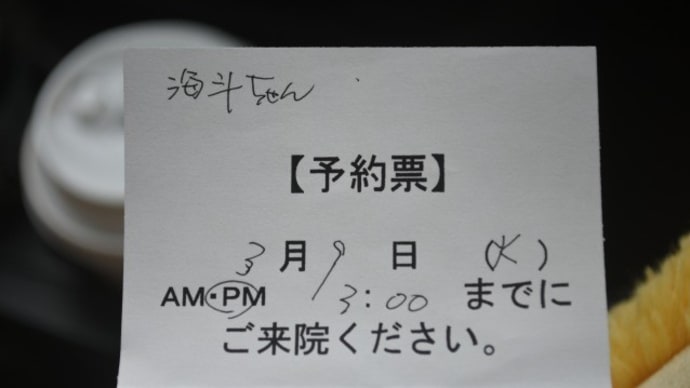 海斗ちゃん
【予約票】
3月9日(水)
AM・PM 3:00 までに
ご来院ください。